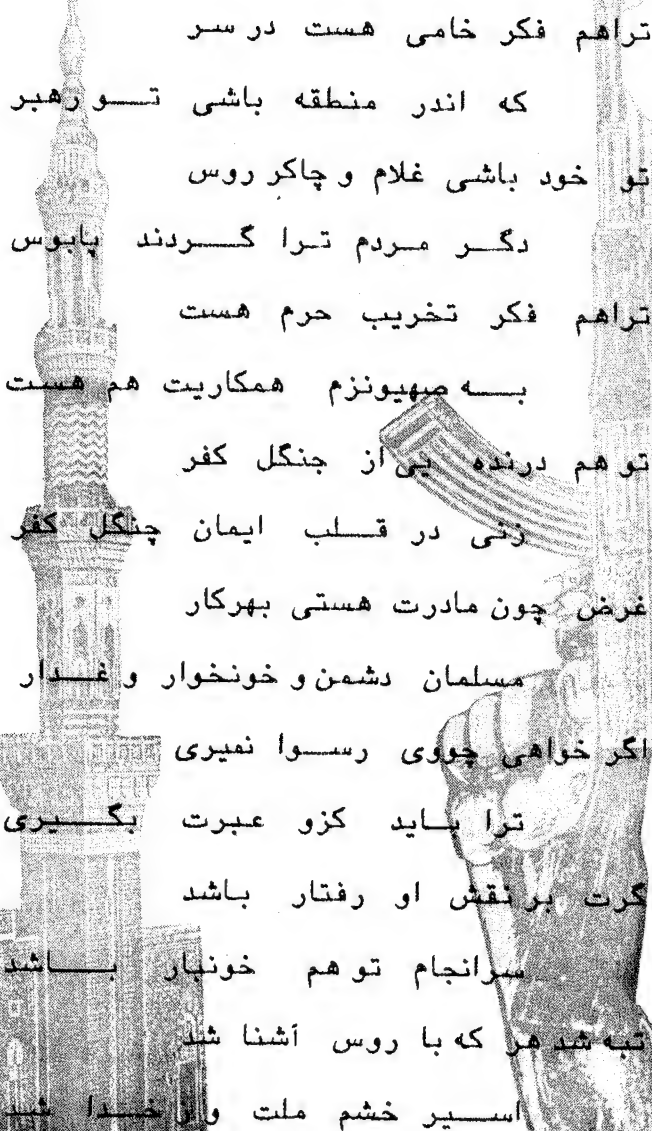 تراهم فکر خامی هست در سر
که اندر منطقه باشی تو رهبر
تو خود باشی غلام و چاکر روس
دگر مردم ترا گردند پابوس
تراهم فکر تخریب حرم هست
به صهیونزم همکاریت هم هست
تو هم درنده یی از جنگل کفر
زنی در قلب ایمان چنگل کفر
غرض چون مادرت هستی بهرکار
مسلمان دشمن و خونخوار و غدار
اگر خواهی چووی رسوا نمیری
ترا باید کزو عبرت بگیری
گرت بر نقش او رفتار باشد
سرانجام تو هم خونبار باشد
تبه شد هر که با روس آشنا شد
اسیر خشم ملت و از خدا شد